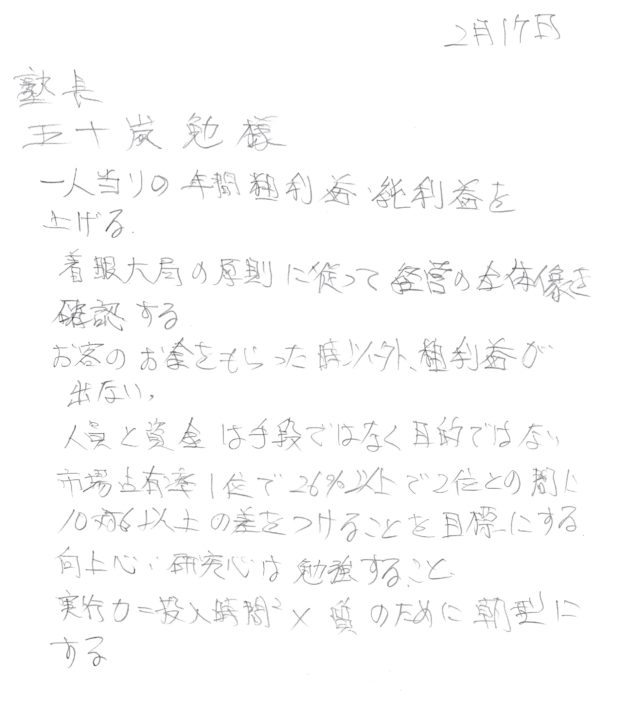 2月17日
塾長
五十嵐勉様
一人当りの年間粗利益・純利益を
上げる.
着眼大局の原則に従って経営の全体像を
確認する
お客のお金をもらった時以外、粗利益が
出ない。
人員と資金は手段ではなく目的ではない
市場占有率1位で26%以上で2位との間に
10対6以上の差をつけることを目標にする
向上心・研究心は勉強すること
実行力=投入時間²×質のために朝型に
する